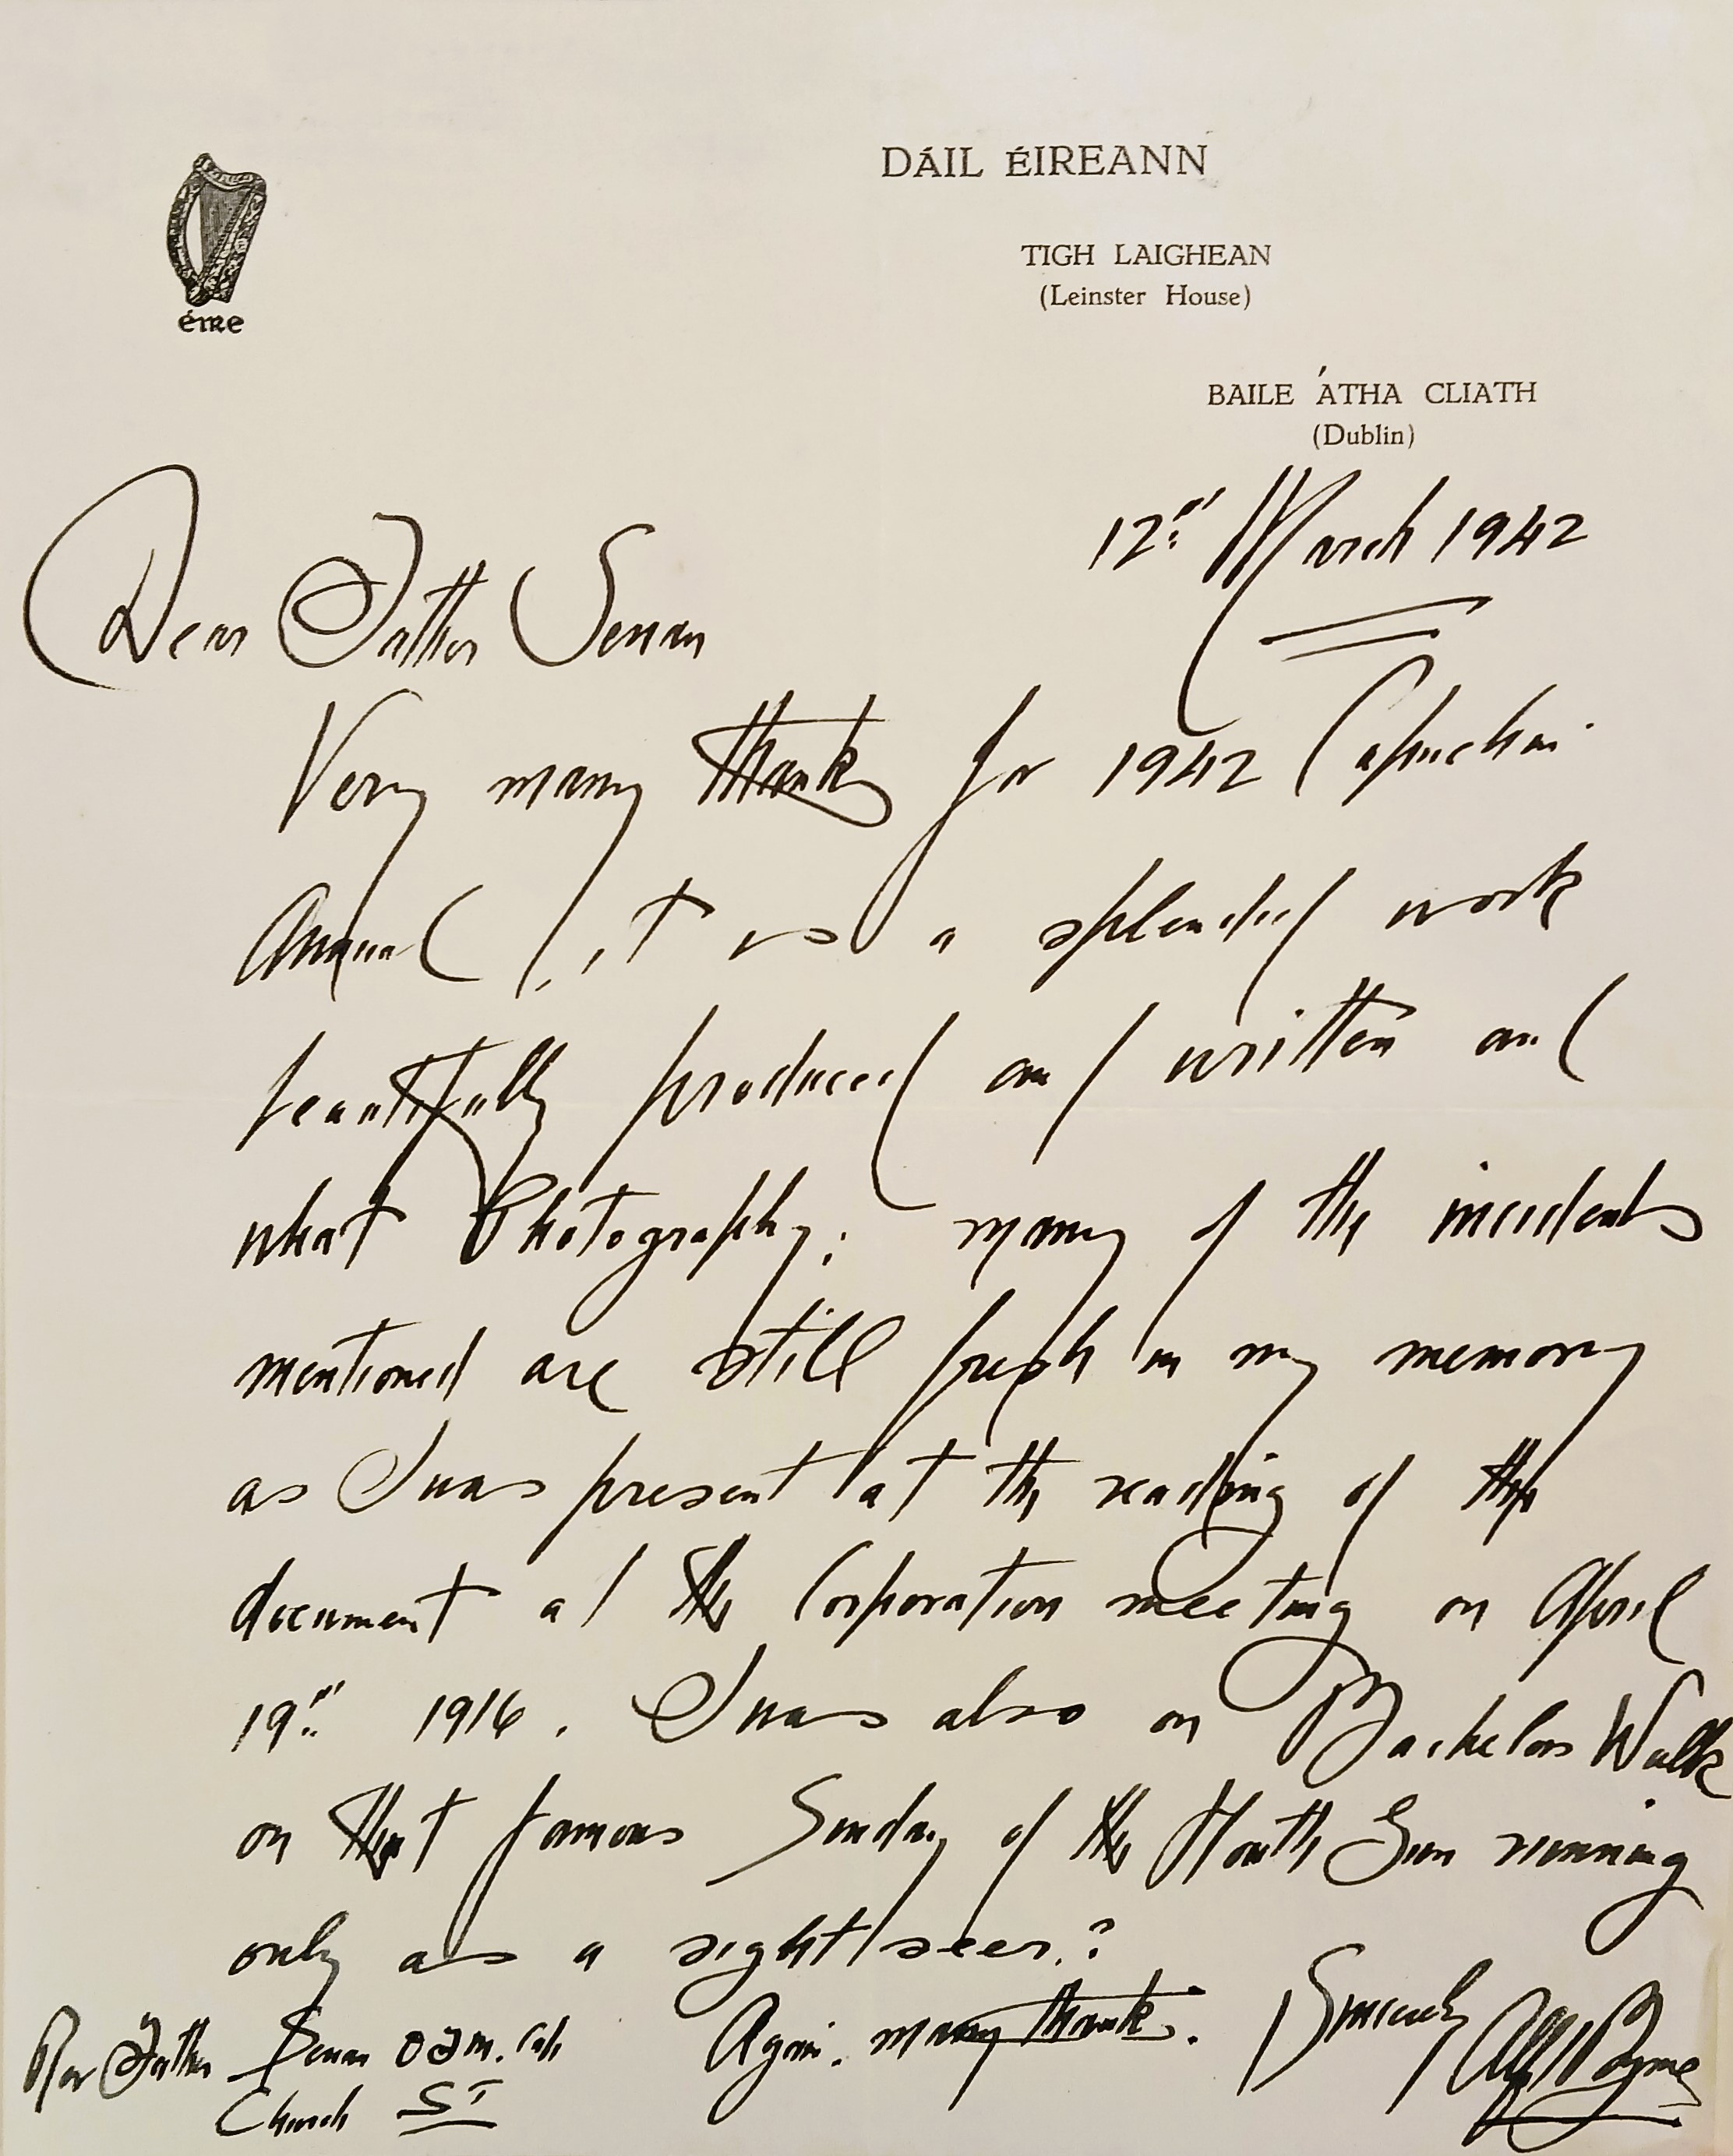 DÁIL ÉIREANN
éire
TIGH LAIGHEAN
(Leinster House)
BAILE ÁTHA CLIATH
(Dublin)
12th March 1942
Dear Father Senan
Very many thanks for 1942 Capuchin
Annual, it is a splendid work
beautifully produced and written and
what Photography; many of the incidents
mentioned are still fresh in my memory
as I was present at the reading of the
document at the Corporation meeting on April
19th 1916. I was also on Bachelors Walk
on that famous Sunday of the Howth Gun running
only as a sight seer.?
Again many thanks. Sincerely Alf Byrne
Rev Father Senan OFM. Cap
Church ST